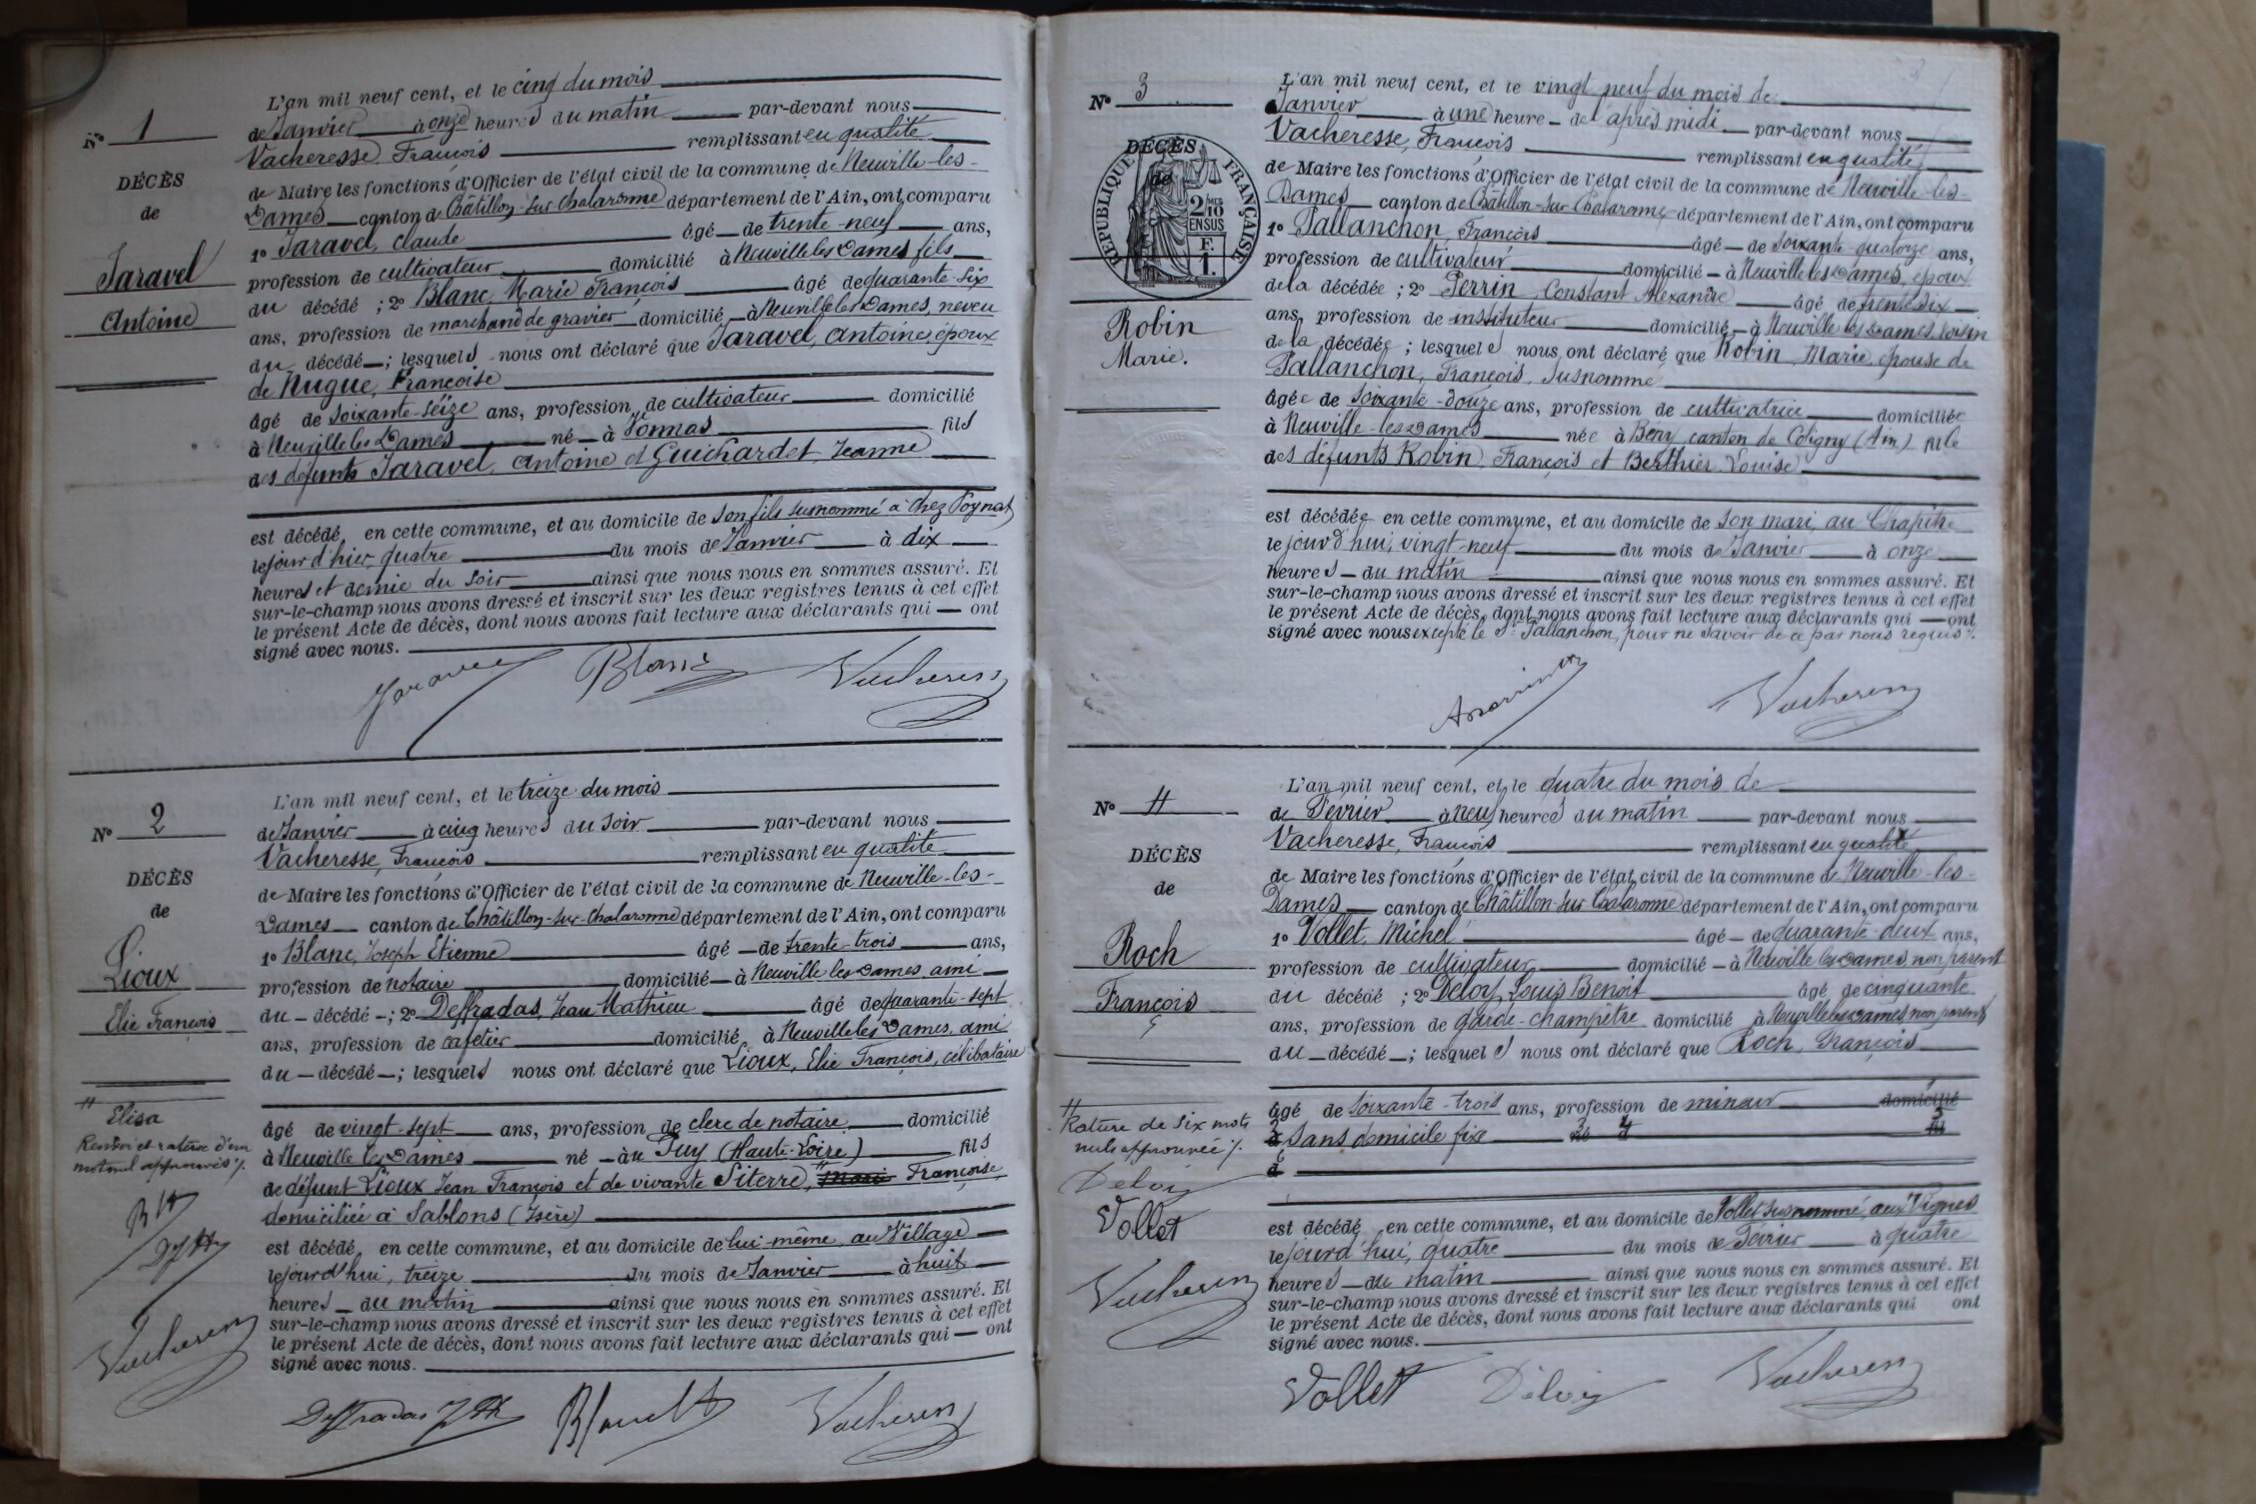 N° 1
DÉCÈS
de
Jaravel
Antoine
L'an mil neuf cent, et le cinq du mois
de Janvier à onze heures du matin par-devant nous
Vacheresse, François remplissant en qualité
de Maire les fonctions d'Officier de l'état civil de la commune de Neuville-les-
Dames canton de Châtillon-sur-Chalaronne département de l'Ain, ont comparu
1° Jaravel, Claude âgé de trente-neuf ans,
profession de cultivateur domicilié à Neuville les Dames, fils
du décédé ; 2° Blanc, Marie François âgé de quarante-six
ans, profession de marchand de gravier domicilié à Neuville les Dames, neveu
du décédé ; lesquels nous ont déclaré que Jaravel, Antoine, époux
de Nugue, Françoise
âgé de soixante-seize ans, profession de cultivateur domicilié
à Neuville les Dames né à Vonnas fils
des défunts Jaravel, Antoine et Guichardet, Jeanne
est décédé en cette commune, et au domicile de son fils susnommé à chez Poynat
le jour d'hier, quatre du mois de Janvier à dix
heures et demie du soir ainsi que nous nous en sommes assuré. Et
sur-le-champ nous avons dressé et inscrit sur les deux registres tenus à cet effet
le présent Acte de décès, dont nous avons fait lecture aux déclarants qui ont
signé avec nous.
Jaravel Blanc Vacheresse
N° 2
DÉCÈS
de
Lioux
Elie François
L'an mil neuf cent, et le treize du mois
de Janvier à cinq heures du soir par-devant nous
Vacheresse, François remplissant en qualité
de Maire les fonctions d'Officier de l'état civil de la commune de Neuville-les-
Dames canton de Châtillon-sur-Chalaronne département de l'Ain, ont comparu
1° Blanc, Joseph Etienne âgé de trente-trois ans,
profession de notaire domicilié à Neuville les Dames, ami
du décédé ; 2° Deffradas, Jean Mathieu âgé de quarante-sept
ans, profession de cafetier domicilié à Neuville les Dames, ami
du décédé ; lesquels nous ont déclaré que Lioux, Elie François, célibataire
âgé de vingt-sept ans, profession de clerc de notaire domicilié
à Neuville les Dames né au Puy (Haute-Loire) fils
de défunt Lioux Jean François et de vivante Siterre, Marie Françoise,
domiciliée à Sablons (Isère)
est décédé en cette commune, et au domicile de lui-même, au Village
le jourd'hui, treize du mois de Janvier à huit
heures du matin ainsi que nous nous en sommes assuré. Et
sur-le-champ nous avons dressé et inscrit sur les deux registres tenus à cet effet
le présent Acte de décès, dont nous avons fait lecture aux déclarants qui ont
signé avec nous.
Elisa
Renvoi et rature d'un
mot nul approuvés
Vacheresse
Deffradas Blanc Vacheresse
N° 3
DÉCÈS
de
RÉPUBLIQUE FRANÇAISE
2 MES
10
EN SUS
F.
1.
Robin
Marie.
L'an mil neuf cent, et le vingt neuf du mois de
Janvier à une heure de l'après midi par-devant nous
Vacheresse, François remplissant en qualité
de Maire les fonctions d'Officier de l'état civil de la commune de Neuville-les-
Dames canton de Châtillon-sur-Chalaronne département de l'Ain, ont comparu
1° Pallanchon, François âgé de soixante-quatorze ans,
profession de cultivateur domicilié à Neuville les Dames, époux
de la décédée ; 2° Perrin, Constant Alexandre âgé de trente-six
ans, profession de instituteur domicilié à Neuville les Dames, voisin
de la décédée ; lesquels nous ont déclaré que Robin, Marie, épouse de
Pallanchon, François, susnommé
âgée de soixante-douze ans, profession de cultivatrice domiciliée
à Neuville-les-Dames née à Bény, canton de Coligny (Ain) fille
des défunts Robin, François et Berthier Louise
est décédée en cette commune, et au domicile de son mari, au Chapitre
le jourd'hui, vingt-neuf du mois de Janvier à onze
heures du matin ainsi que nous nous en sommes assuré. Et
sur-le-champ nous avons dressé et inscrit sur les deux registres tenus à cet effet
le présent Acte de décès, dont nous avons fait lecture aux déclarants qui ont
signé avec nous excepté le Sr Pallanchon, pour ne savoir de ce par nous requis
Vacheresse
N° 4
DÉCÈS
de
Roch
François
L'an mil neuf cent, et le quatre du mois de
de Février à neuf heures du matin par-devant nous
Vacheresse, François remplissant en qualité
de Maire les fonctions d'Officier de l'état civil de la commune de Neuville-les-
Dames canton de Châtillon-sur-Chalaronne département de l'Ain, ont comparu
1° Vollet, Michel âgé de quarante-deux ans,
profession de cultivateur domicilié à Neuville les Dames, non parent
du décédé ; 2° Deloy, Louis Benoit âgé de cinquante
ans, profession de garde-champêtre domicilié à Neuville les Dames non parent
du décédé ; lesquels nous ont déclaré que Roch, François
âgé de soixante-trois ans, profession de mineur domicilié
à sans domicile fixe né à fils
d
est décédé en cette commune, et au domicile de Vollet susnommé, aux Vignes
le jourd'hui, quatre du mois de Février à quatre
heures du matin ainsi que nous nous en sommes assuré. Et
sur-le-champ nous avons dressé et inscrit sur les deux registres tenus à cet effet
le présent Acte de décès, dont nous avons fait lecture aux déclarants qui ont
signé avec nous.
Rature de six mots
nuls approuvée
Deloy
Vollet
Vacheresse
Vollet Deloy Vacheresse